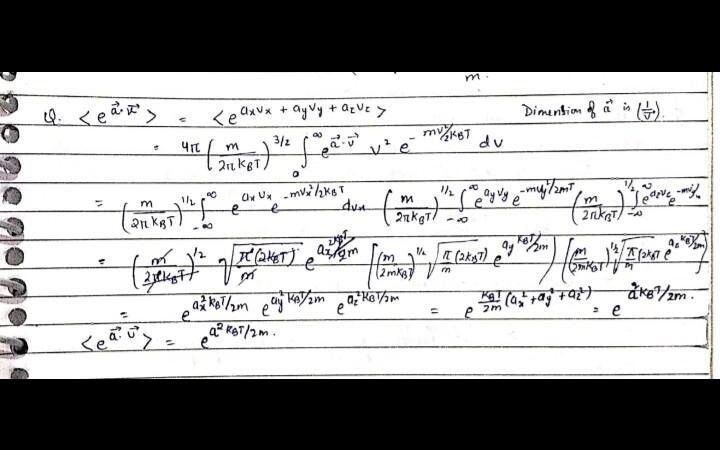 m.
Q. ⟨e^{a⃗·v⃗}⟩ = ⟨e^{axvx + ayvy + azvz}⟩ Dimension of a⃗ is (1/v).
= 4π (m/2πkBT)^{3/2} ∫_0^∞ e^{a⃗·v⃗} v² e^{-mv²/2kBT} dv
= (m/2πkBT)^{1/2} ∫_{-∞}^{∞} e^{axvx} e^{-mvx²/2kBT} dvx (m/2πkBT)^{1/2} ∫_{-∞}^{∞} e^{ayvy} e^{-mvy²/2mT} (m/2πkBT)^{1/2} ∫_{-∞}^{∞} e^{azvz} e^{-mvz²/}
= (m/2πkBT)^{1/2} √(π(2kBT)/m) e^{ax²kBT/2m} [(m/2πkBT)^{1/2} √(π(2kBT)/m) e^{ay²kBT/2m}] [(m/2πkBT)^{1/2} √(π(2kBT)/m) e^{az²kBT/2m}]
= e^{ax²kBT/2m} e^{ay²kBT/2m} e^{az²kBT/2m} = e^{kBT/2m (ax²+ay²+az²)} = e^{a²kBT/2m}.
⟨e^{a⃗·v⃗}⟩ = e^{a²kBT/2m}.